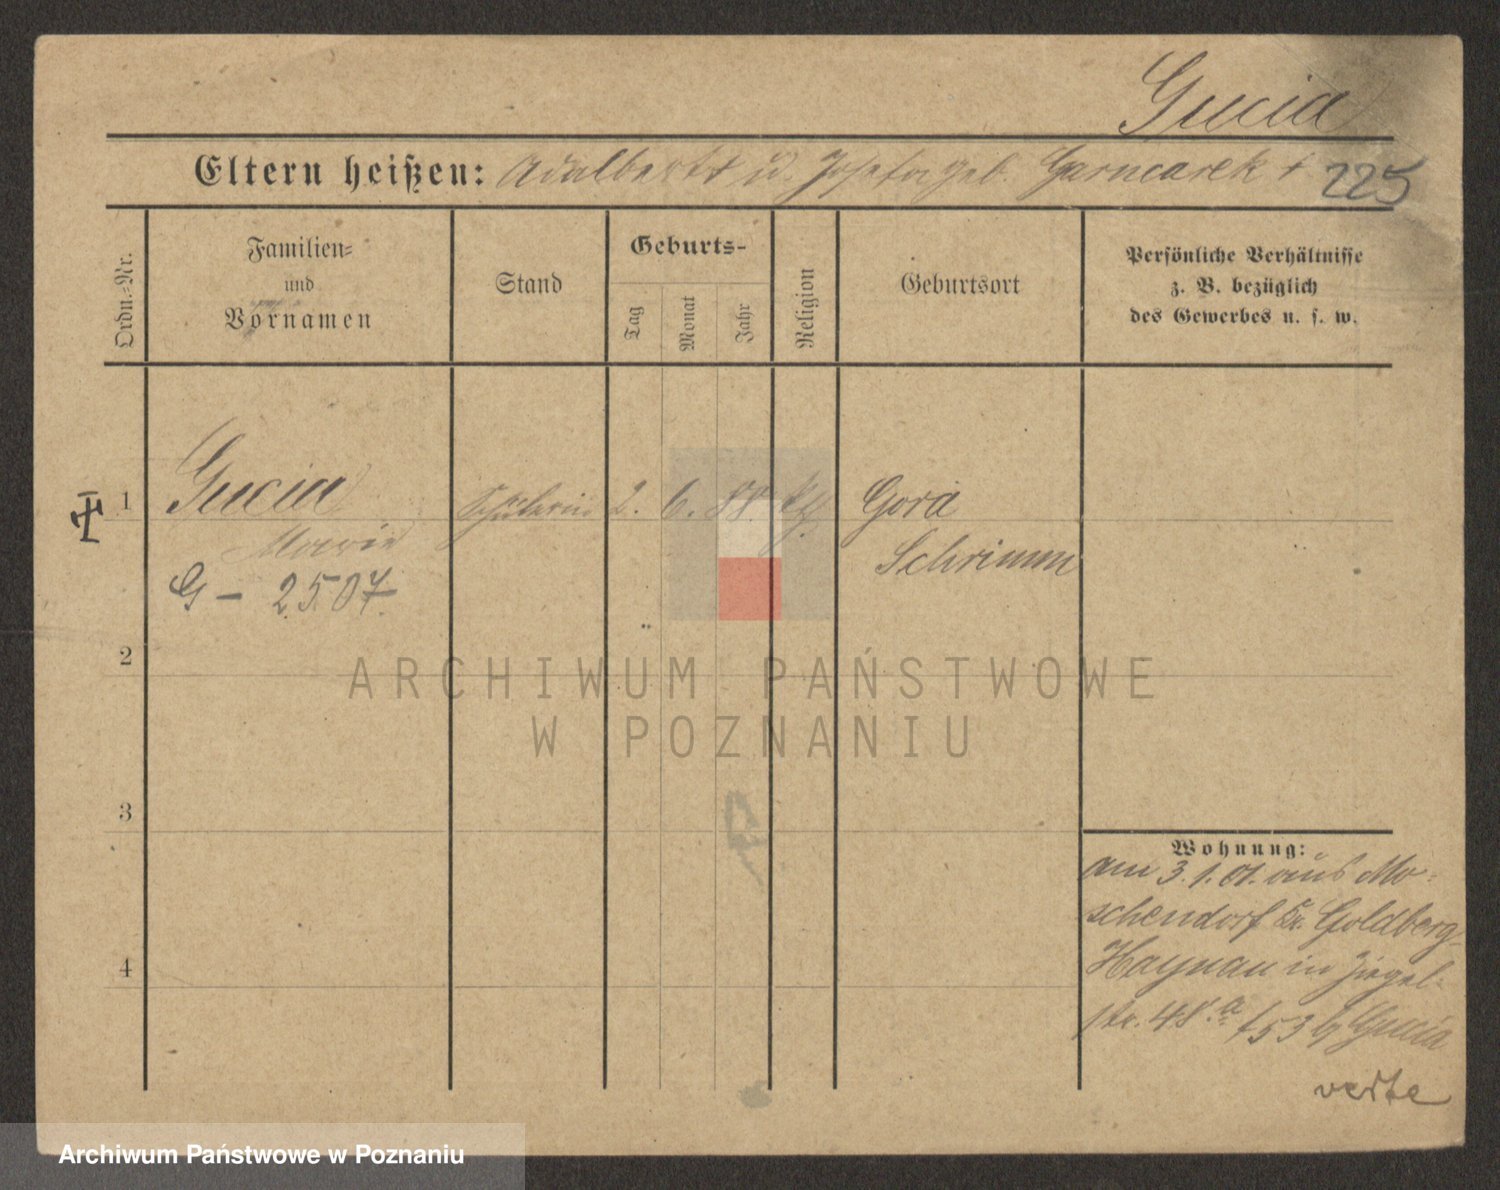 Gucia
Eltern heißen: Adalbert † u. Josefa geb. Garncarek †
225
Ordn.-Nr.
Familien-
und
Vornamen
Stand
Geburts-
Tag
Monat
Jahr
Religion
Geburtsort
Persönliche Verhältnisse
z. B. bezüglich
des Gewerbes u. s. w.
1 Gucia Schülerin 2. 6. 88. kth. Gora
Marie Schrimm
G – 2507.
2
ARCHIWUM PAŃSTWOWE
W POZNANIU
3
Wohnung:
am 3.1.01. aus Mo-
schendorf Kr. Goldberg-
4
Haynau in Ziegel-
str. 48.a 153 b/ Gucia
verte
Archiwum Państwowe w Poznaniu